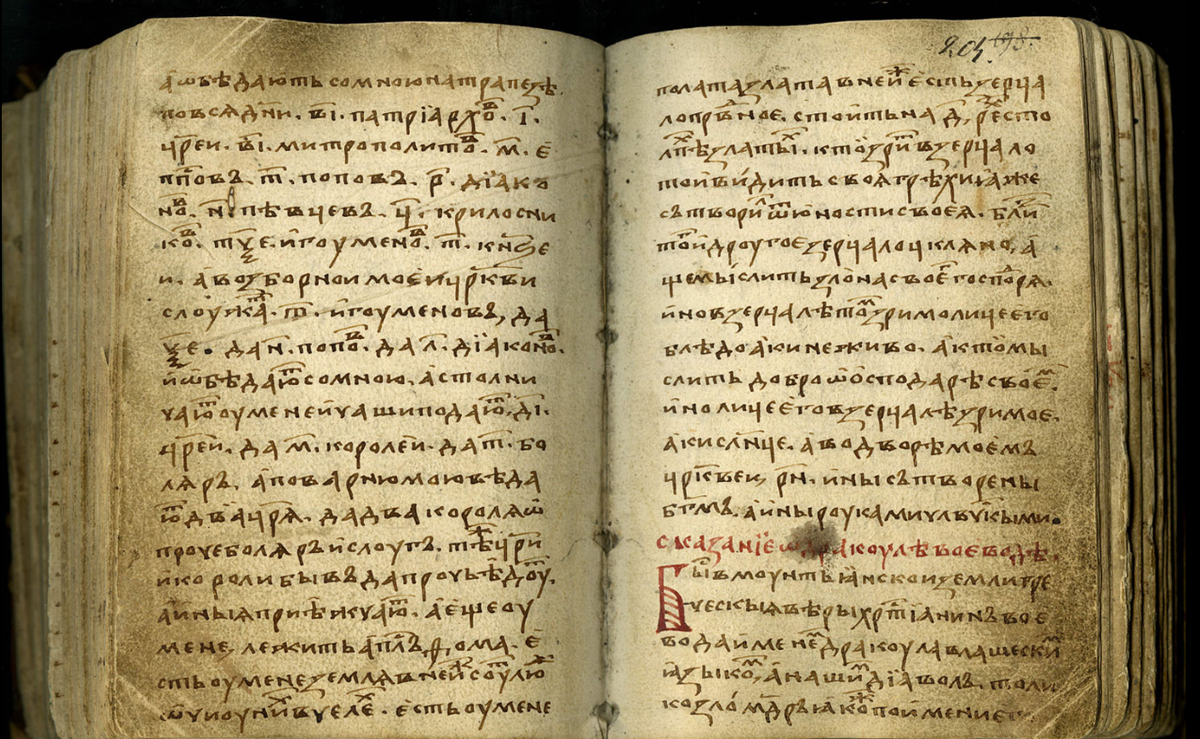 а҆ ѡ҆бѣдаютъ со мною на трапезѣ
по вся дн҃и. в҃і. патрїархоⷡ҇. і҃.
цр҃еи. в҃і. митрополитоⷡ҇. м҃. є҆
пп҃овъ. т҃. поповъ. р҃. дїако
ноⷡ҇. н҃. пѣвчевъ. ч҃. крилосни
коⷡ҇. т҃ѯ҃е. и҆гоуменоⷡ҇. т҃. кн҃ѕе
и. а҆ возборнои моеи цр҃кви
слоужаⷮ. т҃. и҆гоуменовъ, да
ѯ҃е. да н҃. попоⷡ҇. да л҃. дїаконоⷡ҇.
и҆ ѡ҆бѣдаюⷮ со мною. а҆ столни
чаюⷮ оу мене и чаши подаюⷮ, д҃і.
цр҃еи. да м҃. королеи. да т҃. бо
ляръ. а҆ поварню мою вѣда
юⷮ два цр҃я. да два короля ѡ҆
проче боляръ и слоугъ. тѣⷤ цр҃и
и короли бывъ да прочь ѣдоуⷮ.
а҆ ины я приѣжчаюⷮ. а҆ еще оу
мене, лежитъ ап҃лъ, ѳома. є҆
сть оу мене земля в неи соуⷮ лю
ѡчи оу ниⷯ в челеⷯ. есть оу мене
204. 198.
полата злата в неиⷤ е҆сть зерча
ло прв҃ное. стоить на д҃, реⷯ сто
лпѣⷯ златыⷯ. кто зриⷮ в зерчало
то и ви́дить своя грѣхи, ꙗ҆же
сътвориⷧ ѿ ю҆ности своея. блиⷥ
тоⷢ и дроугое зерчало цкляно, а҆
ще мы́слить зло на своеⷢ госпоⷣря.
и҆но в зерчалѣ тоⷨ зримо лице его
блѣдо а҆ки не живо. а҆ кто мы
слить добро ѡ҆ осподарѣ своеⷨ.
и҆но лице е҆го в зерчалѣ зримое.
а҆ки слн҃це. а҆ во дворѣ моемъ
цр҃квеи, рн҃. и҆ны сътворены
бг҃мъ. а҆ и҆ны роуками чл҃вч҃кыми.
сказанїе ѡ҆ дракоулѣ воеводѣ.
Быⷭ҇ в моунтьꙗнскои земли гре
ческыя вѣры хрⷭ҇тїанинъ вое
вода именеⷨ дракоула влашескиⷨ
ꙗ҆зыкоⷨ, а҆ нашиⷨ дїаволъ. толи
ко зло́ мд҃ръ ꙗ҆коⷤ по имени е